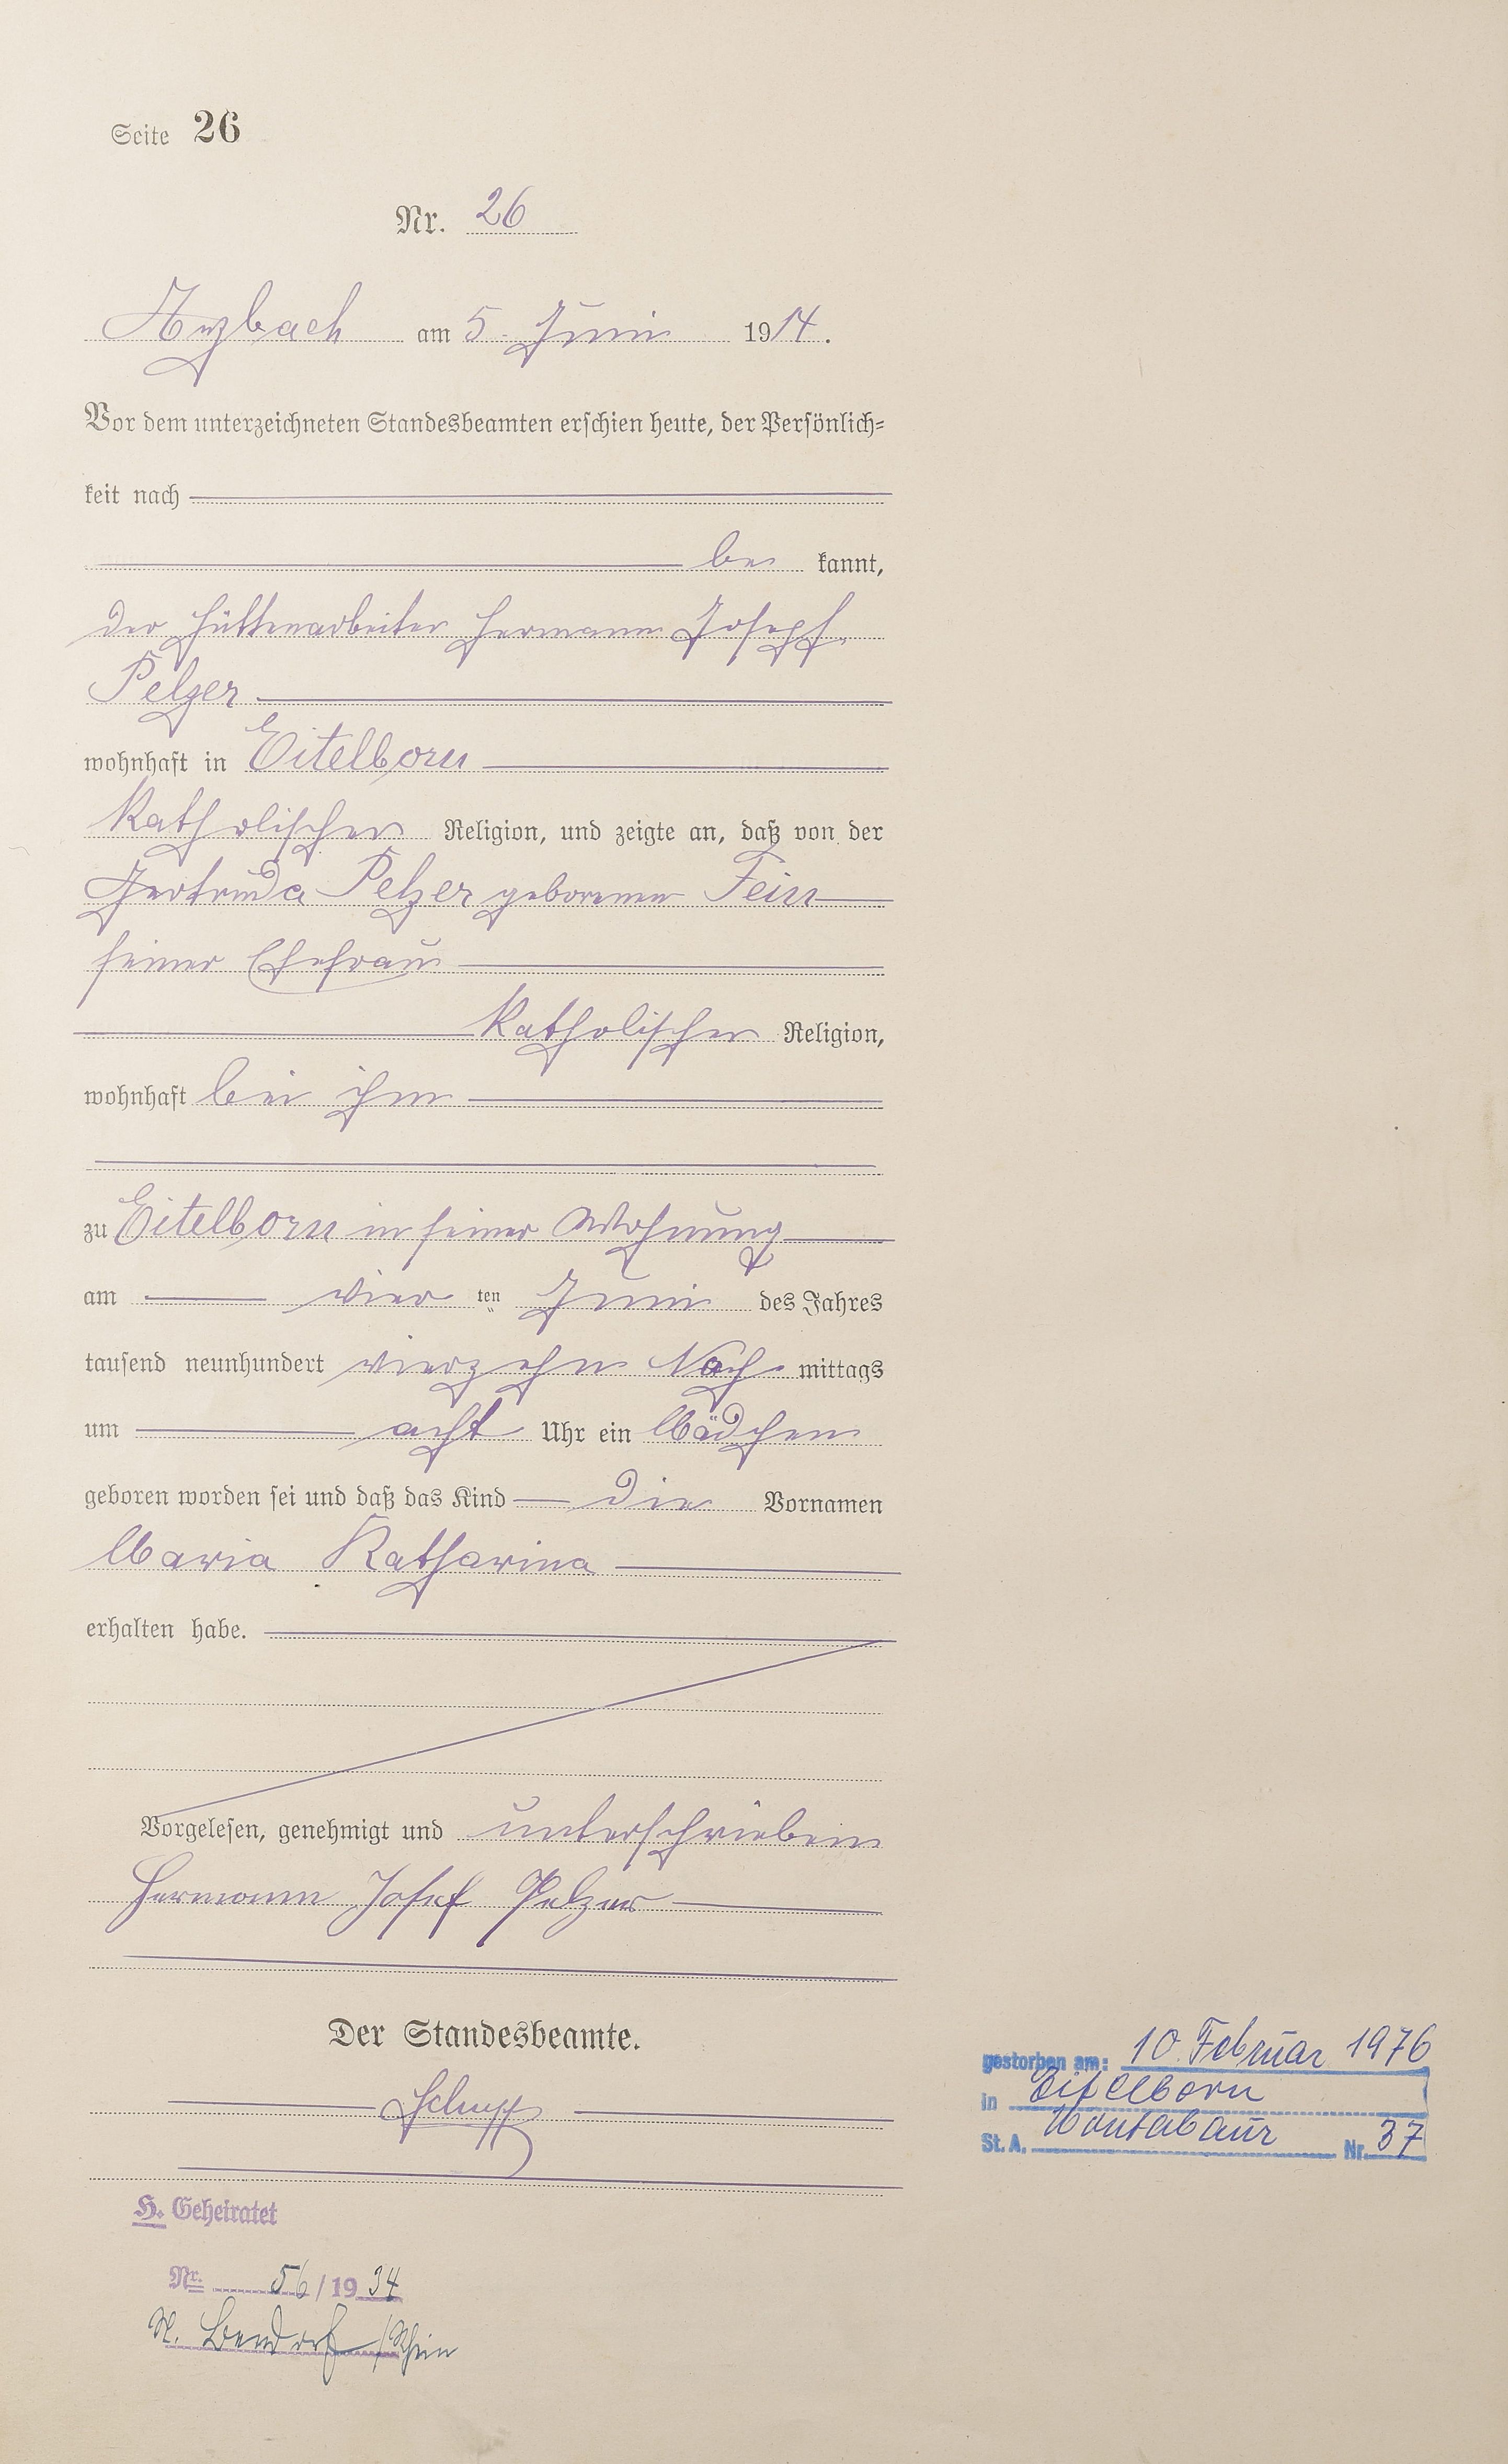 Seite 26
Nr. 26
Arzbach am 5. Juni 1914.
Vor dem unterzeichneten Standesbeamten erschien heute, der Persönlich-
keit nach
be kannt,
der Hüttenarbeiter Hermann Joseph
Pelzer
wohnhaft in Eitelborn
katholischer Religion, und zeigte an, daß von der
Gertruda Pelzer geborenen Fein
seiner Ehefrau
katholischer Religion,
wohnhaft bei ihm
zu Eitelborn in seiner Wohnung
am vier ten Juni des Jahres
tausend neunhundert vierzehn Nach mittags
um acht Uhr ein Mädchen
geboren worden sei und daß das Kind die Vornamen
Maria Katharina
erhalten habe.
Vorgelesen, genehmigt und unterschrieben
Hermann Josef Pelzer
Der Standesbeamte.
Schupp
H. Geheiratet
Nr. 56/1934
St. Bendorf/Rhein
gestorben am: 10. Februar 1976
in Eitelborn
St. A. Montabaur Nr. 37